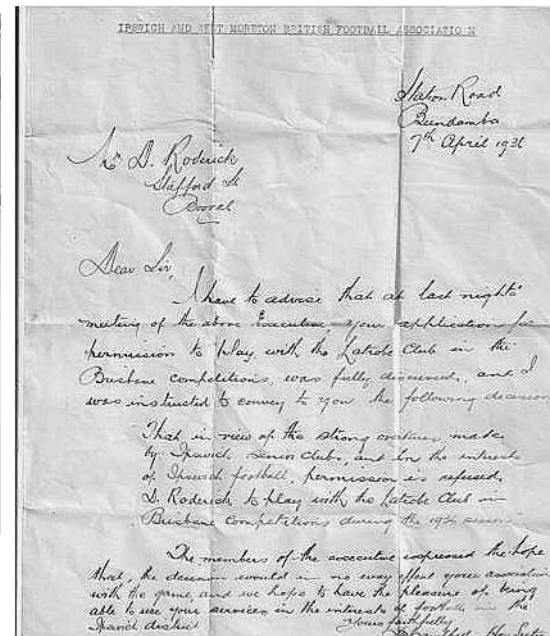 IPSWICH AND WEST MORETON BRITISH FOOTBALL ASSOCIATION
Station Road
Bundamba
7th April 1936
Mr D. Roderick
Stafford St
Booval
Dear Sir,
I have to advise that at last night's
meeting of the above Executive, your application for
permission to play with the Latrobe Club in the
Brisbane competitions, was fully discussed, and I
was instructed to convey to you the following decision
That in view of the strong made
by Ipswich senior clubs, and in the interests
of Ipswich football, permission is refused
D. Roderick to play with the Latrobe Club in
Brisbane Competitions during the 1936 season
The members of the executive expressed the hope
that, the decision would in no way effect your association
with the game, and we hope to have the pleasure of being
able to use your services in the interests of football in the
Ipswich district
Yours faithfully